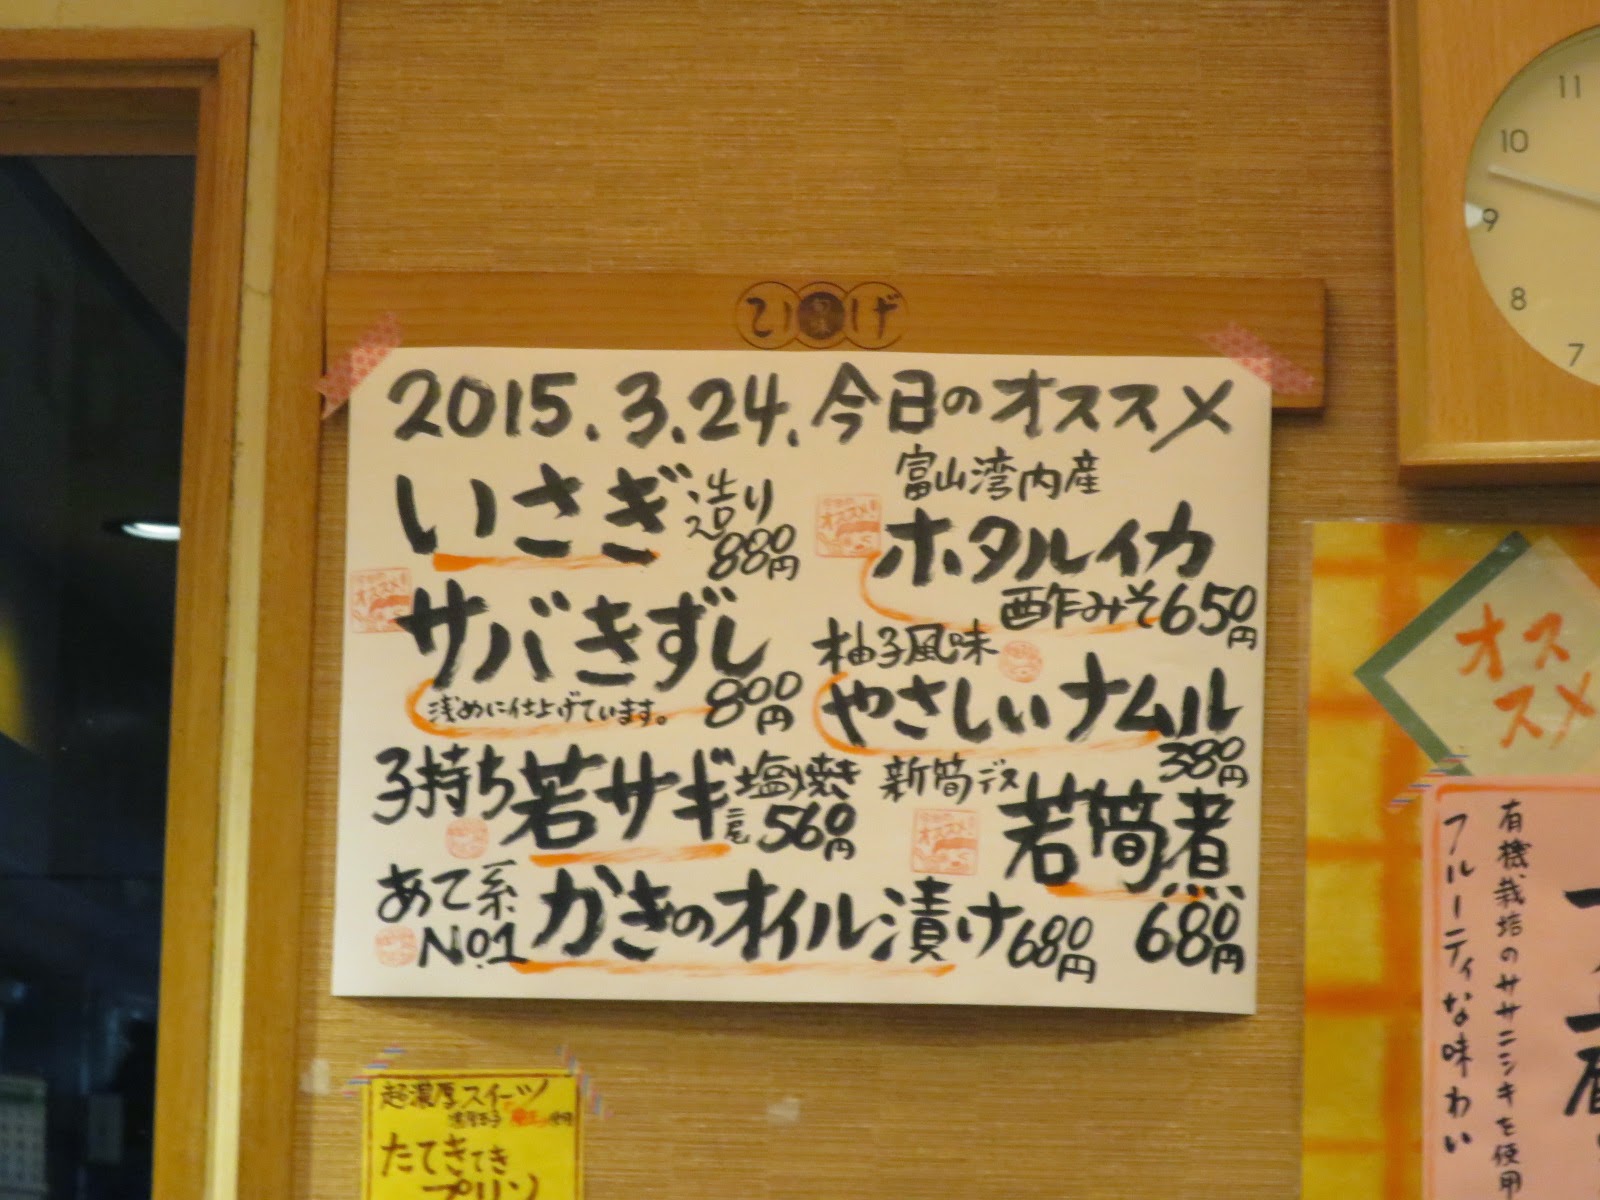 2015.3.24.今日のオススメ
いさぎ造り
880円
サバきずし
浅めに仕上げています。
800円
子持ち若サギ塩焼き
二尾 560円
あて系
No.1
かきのオイル漬け680円
富山湾内産
オススメ!
ホタルイカ
酢みそ650円
柚子風味
やさしいナムル
380円
新筍デス
オススメ!
若筍煮
680円
オススメ!
11
10
9
8
7
オス
スメ
有機栽培のササニシキを使用
フルーティな味わい
超濃厚スイーツ
たてきてき
プリン